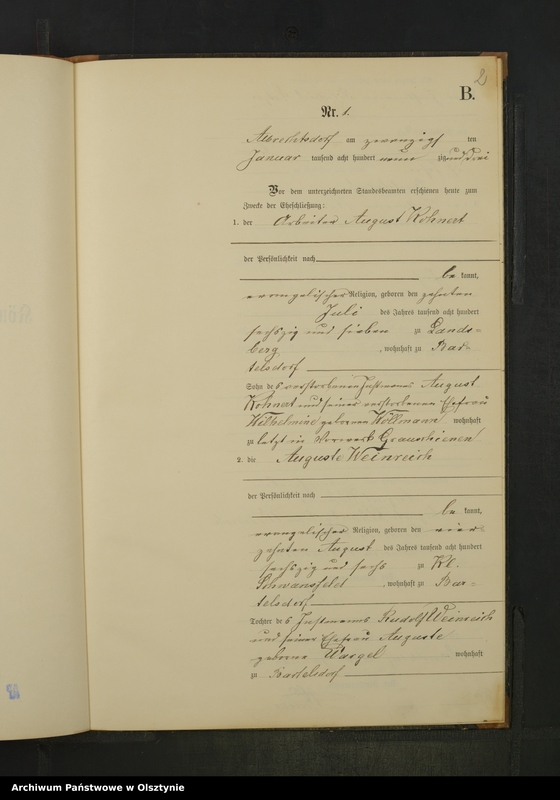 2
B.
Nr. 1.
Albrechtsdorf am zwanzigs ten
Januar tausend acht hundert neun zig und drei
Vor dem unterzeichneten Standesbeamten erschienen heute zum
Zwecke der Eheschließung:
1. der Arbeiter August Kohnert
der Persönlichkeit nach
be kannt,
evangelischer Religion, geboren den zehnten
Juli des Jahres tausend acht hundert
sechszig und sieben zu Lands-
berg , wohnhaft zu Bar-
telsdorf
Sohn des verstorbenen Instmanns August
Kohnert und seiner verstorbenen Ehefrau
Wilhelmine geborenen Wollmann wohnhaft
zu letzt in Vorwerk Grauschienen
2. die Auguste Weinreich
der Persönlichkeit nach
be kannt,
evangelischer Religion, geboren den vier-
zehnten August des Jahres tausend acht hundert
sechszig und sechs zu Kl.
Schwansfeld , wohnhaft zu Bar-
telsdorf
Tochter des Instmanns Rudolf Weinreich
und seiner Ehefrau Auguste
geborene wohnhaft
zu Bartelsdorf
Archiwum Państwowe w Olsztynie